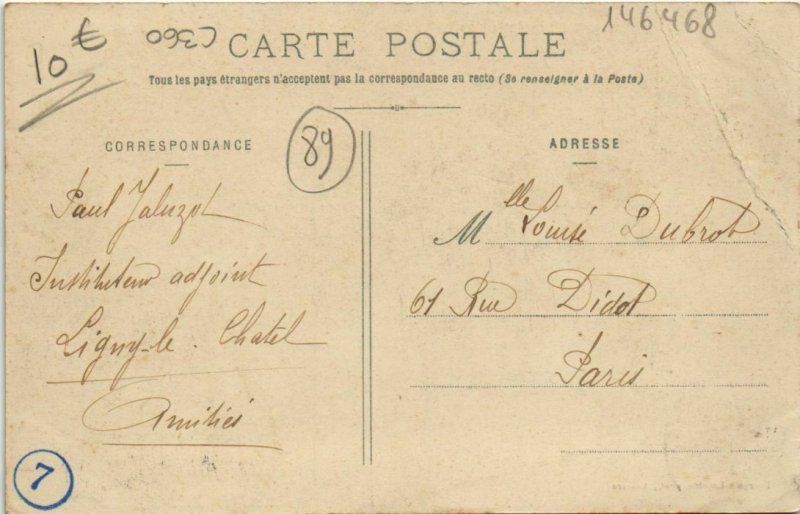 10 €
C360
146468
CARTE POSTALE
Tous les pays étrangers n'acceptent pas la correspondance au recto (Se renseigner à la Poste)
CORRESPONDANCE
89
Paul Jaluzot
Instituteur adjoint
Ligny-le-Chatel
Amitiés
7
ADRESSE
Mlle Louise Dubrot
61 Rue Didot
Paris